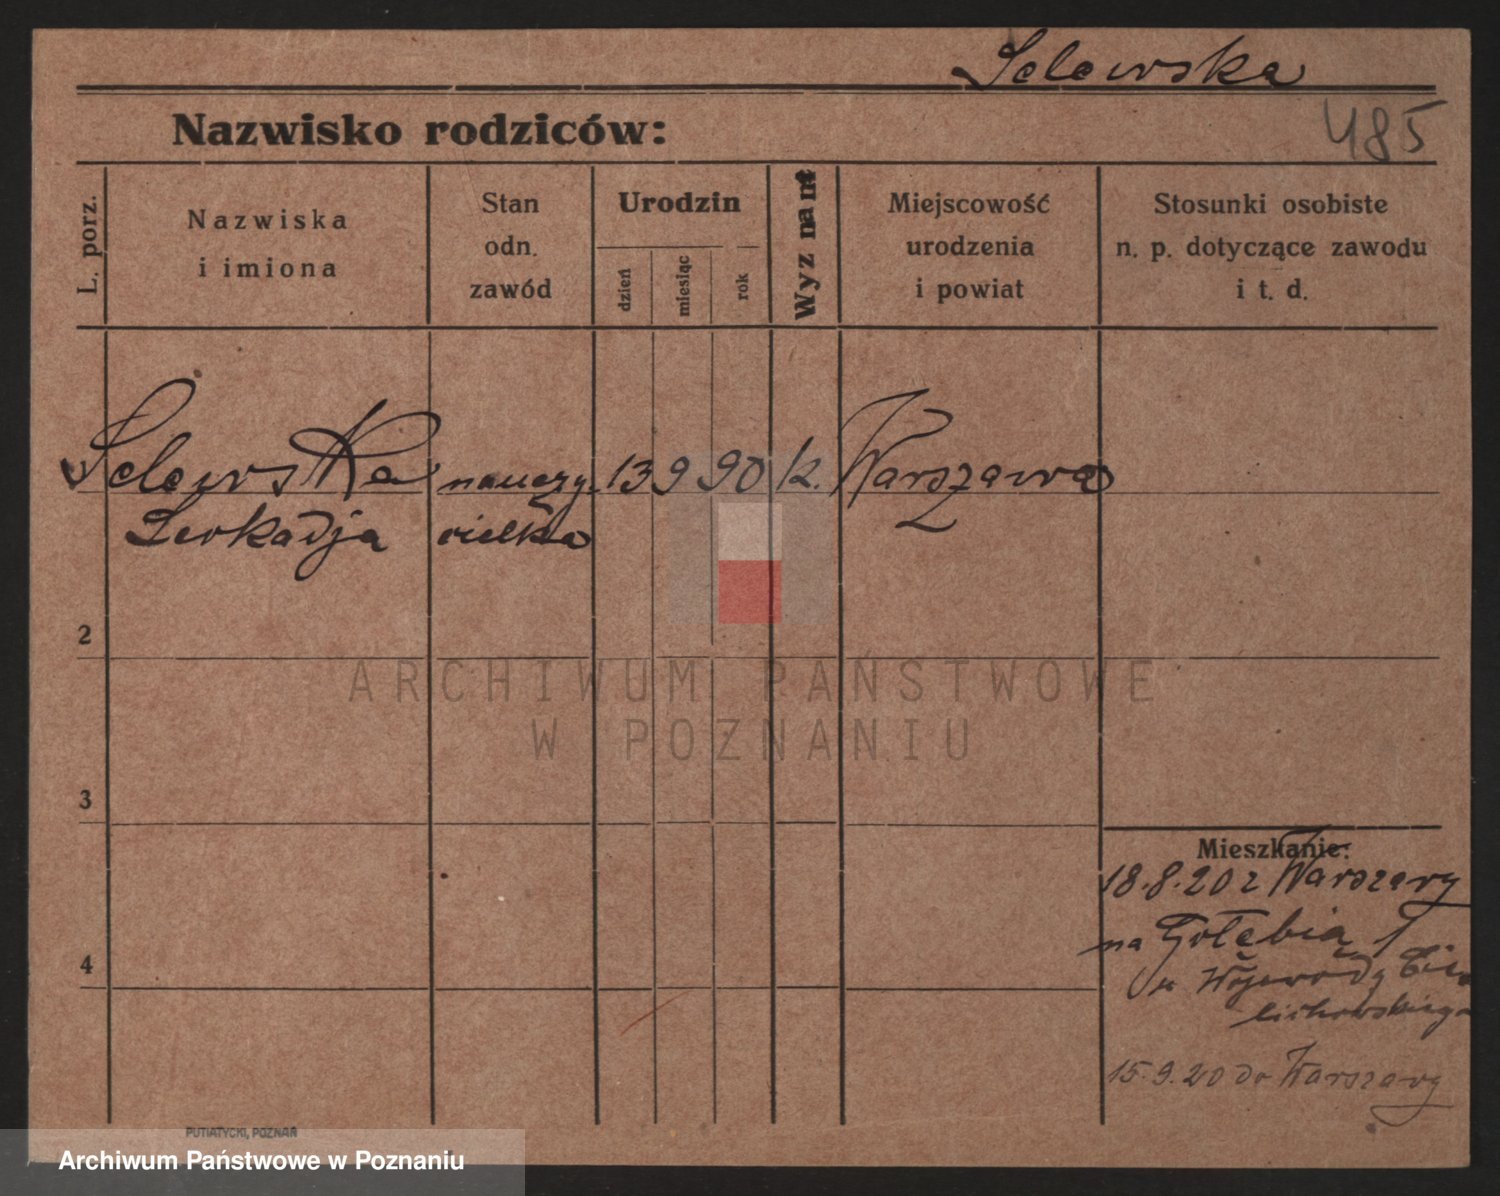 Selewska
485
Nazwisko rodziców:
L. porz.
Nazwiska
i imiona
Stan
odn.
zawód
Urodzin
dzień
miesiąc
rok
Wyznanie
Miejscowość
urodzenia
i powiat
Stosunki osobiste
n. p. dotyczące zawodu
i t. d.
Selewska nauczy- 13 9 90 k. Warszawa
Leokadja cielka
2
3
4
Mieszkanie:
18.8.20 z Warszawy
na Gołębią 1
u Wojewody
15.9.20 do Warszawy
PUTIATYCKI, POZNAŃ
ARCHIWUM PAŃSTWOWE
W POZNANIU
Archiwum Państwowe w Poznaniu